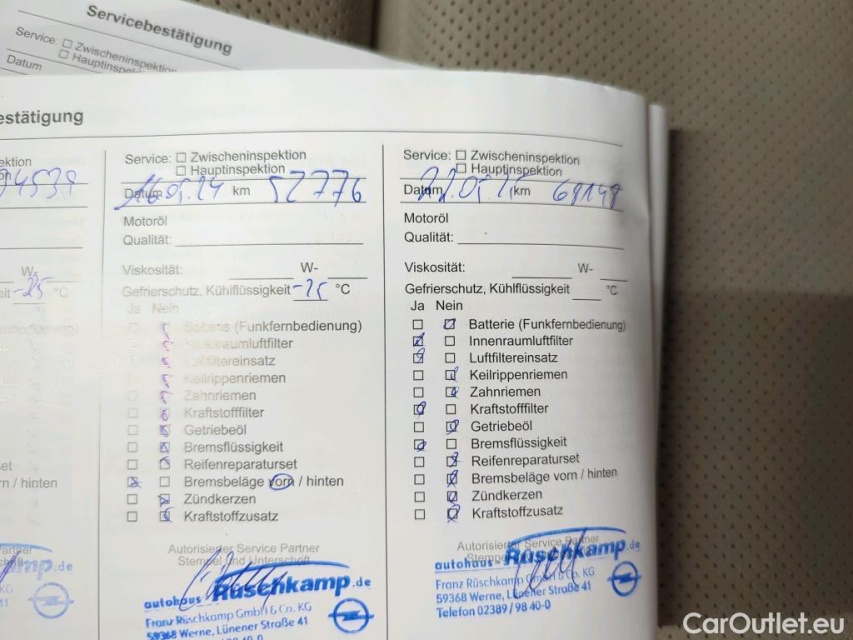 Servicebestätigung
Service: □ Zwischeninspektion
□ Hauptinspektion
Datum
estätigung
ektion
74539
W-
eit -25 °C
set
rn / hinten
Service: □ Zwischeninspektion
□ Hauptinspektion
Datum 16.05.14 km 52776
Motoröl
Qualität:
Viskosität: W-
Gefrierschutz, Kühlflüssigkeit -25 °C
Ja Nein
Batterie (Funkfernbedienung)
Innenraumluftfilter
Luftfiltereinsatz
Keilrippenriemen
Zahnriemen
Kraftstofffilter
Getriebeöl
Bremsflüssigkeit
Reifenreparaturset
Bremsbeläge vorn / hinten
Zündkerzen
Kraftstoffzusatz
Autorisierter Service Partner
Stempel und Unterschrift
autohaus Rüschkamp.de
Franz Rüschkamp GmbH & Co. KG
59368 Werne, Lünener Straße 41
Service: □ Zwischeninspektion
□ Hauptinspektion
Datum km 69149
Motoröl
Qualität:
Viskosität: W-
Gefrierschutz, Kühlflüssigkeit °C
Ja Nein
Batterie (Funkfernbedienung)
Innenraumluftfilter
Luftfiltereinsatz
Keilrippenriemen
Zahnriemen
Kraftstofffilter
Getriebeöl
Bremsflüssigkeit
Reifenreparaturset
Bremsbeläge vorn / hinten
Zündkerzen
Kraftstoffzusatz
Autorisierter Service Partner
autohaus - Rüschkamp.de
Franz Rüschkamp GmbH & Co. KG
59368 Werne, Lünener Straße 41
Telefon 02389 / 98 40-0
CarOutlet.eu